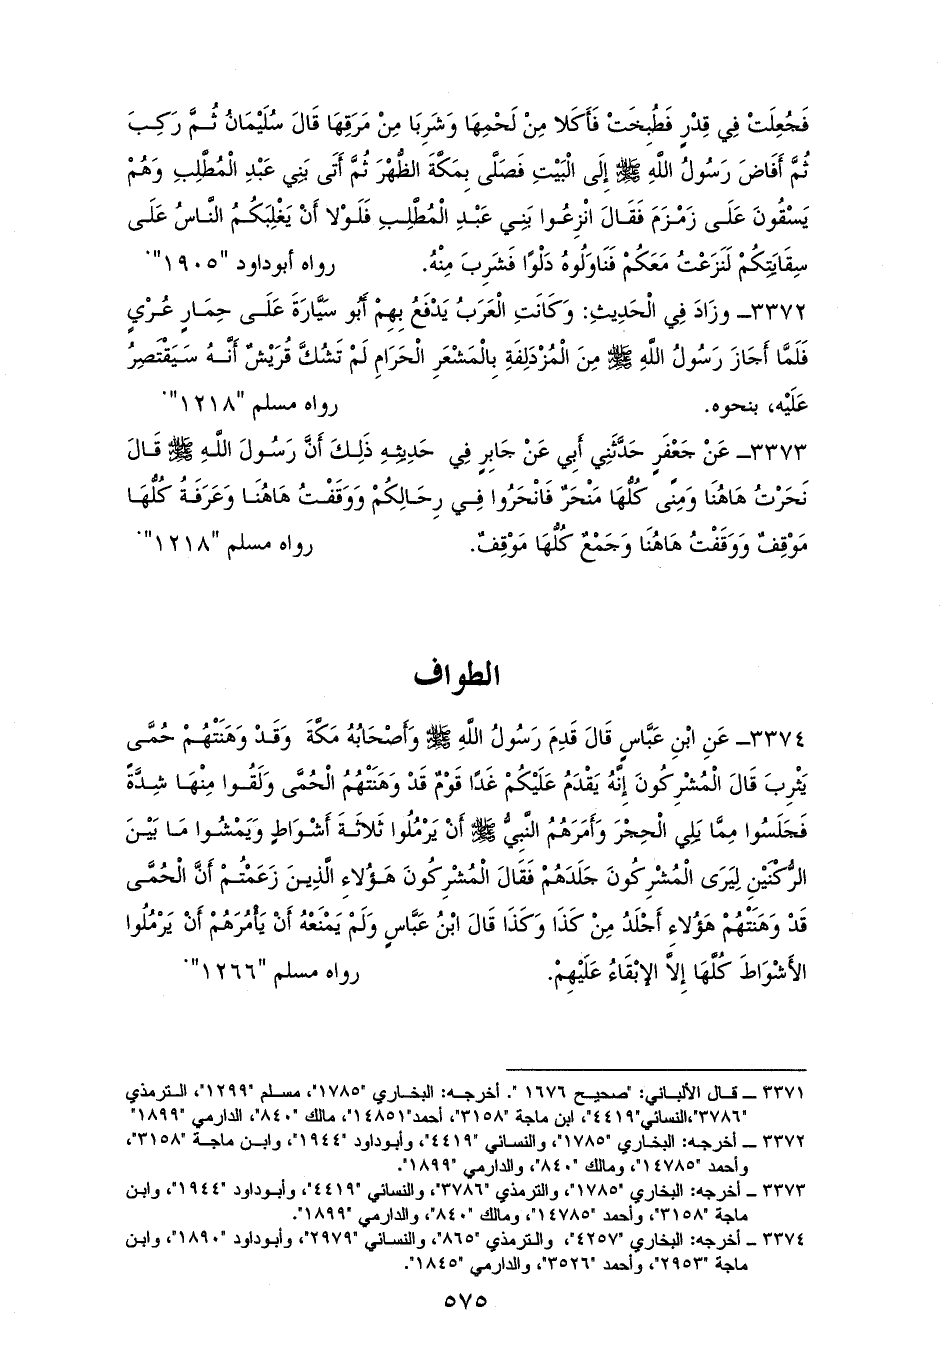 فَجُعِلَتْ فِي قِدْرٍ فَطُبِخَتْ فَأَكَلَا مِنْ لَحْمِهَا وَشَرِبَا مِنْ مَرَقِهَا قَالَ سُلَيْمَانُ ثُمَّ رَكِبَ
ثُمَّ أَفَاضَ رَسُولُ اللَّهِ ﷺ إِلَى الْبَيْتِ فَصَلَّى بِمَكَّةَ الظُّهْرَ ثُمَّ أَتَى بَنِي عَبْدِ الْمُطَّلِبِ وَهُمْ
يَسْقُونَ عَلَى زَمْزَمَ فَقَالَ انْزِعُوا بَنِي عَبْدِ الْمُطَّلِبِ فَلَوْلَا أَنْ يَغْلِبَكُمُ النَّاسُ عَلَى
سِقَايَتِكُمْ لَنَزَعْتُ مَعَكُمْ فَنَاوَلُوهُ دَلْوًا فَشَرِبَ مِنْهُ. رواه أبوداود "١٩٠٥".
٣٣٧٢ـ وزَادَ فِي الْحَدِيثِ: وَكَانَتِ الْعَرَبُ يَدْفَعُ بِهِمْ أَبُو سَيَّارَةَ عَلَى حِمَارٍ عُرْيٍ
فَلَمَّا أَجَازَ رَسُولُ اللَّهِ ﷺ مِنَ الْمُزْدَلِفَةِ بِالْمَشْعَرِ الْحَرَامِ لَمْ تَشُكَّ قُرَيْشٌ أَنَّهُ سَيَقْتَصِرُ
عَلَيْه، بنحوه. رواه مسلم "١٢١٨".
٣٣٧٣ـ عَنْ جَعْفَرٍ حَدَّثَنِي أَبِي عَنْ جَابِرٍ فِي حَدِيثِهِ ذَلِكَ أَنَّ رَسُولَ اللَّهِ ﷺ قَالَ
نَحَرْتُ هَاهُنَا وَمِنًى كُلُّهَا مَنْحَرٌ فَانْحَرُوا فِي رِحَالِكُمْ وَوَقَفْتُ هَاهُنَا وَعَرَفَةُ كُلُّهَا
مَوْقِفٌ وَوَقَفْتُ هَاهُنَا وَجَمْعٌ كُلُّهَا مَوْقِفٌ. رواه مسلم "١٢١٨".
الطواف
٣٣٧٤ـ عَنِ ابْنِ عَبَّاسٍ قَالَ قَدِمَ رَسُولُ اللَّهِ ﷺ وَأَصْحَابُهُ مَكَّةَ وَقَدْ وَهَنَتْهُمْ حُمَّى
يَثْرِبَ قَالَ الْمُشْرِكُونَ إِنَّهُ يَقْدَمُ عَلَيْكُمْ غَدًا قَوْمٌ قَدْ وَهَنَتْهُمُ الْحُمَّى وَلَقُوا مِنْهَا شِدَّةً
فَجَلَسُوا مِمَّا يَلِي الْحِجْرَ وَأَمَرَهُمُ النَّبِيُّ ﷺ أَنْ يَرْمُلُوا ثَلَاثَةَ أَشْوَاطٍ وَيَمْشُوا مَا بَيْنَ
الرُّكْنَيْنِ لِيَرَى الْمُشْرِكُونَ جَلَدَهُمْ فَقَالَ الْمُشْرِكُونَ هَؤُلَاءِ الَّذِينَ زَعَمْتُمْ أَنَّ الْحُمَّى
قَدْ وَهَنَتْهُمْ هَؤُلَاءِ أَجْلَدُ مِنْ كَذَا وَكَذَا قَالَ ابْنُ عَبَّاسٍ وَلَمْ يَمْنَعْهُ أَنْ يَأْمُرَهُمْ أَنْ يَرْمُلُوا
الأَشْوَاطَ كُلَّهَا إِلاَّ الإِبْقَاءُ عَلَيْهِمْ. رواه مسلم "١٢٦٦".
٣٣٧١ ـ قال الألباني: "صحيح ١٦٧٦". أخرجه: البخاري "١٧٨٥"، مسلم "١٢٩٩"، الترمذي
"٣٧٨٦"،النسائي"٤٤١٩"، ابن ماجة "٣١٥٨"، أحمد"١٤٨٥١"، مالك "٨٤٠"، الدارمي "١٨٩٩"
٣٣٧٢ ـ أخرجه: البخاري "١٧٨٥"، والنسائي "٤٤١٩"، وأبوداود "١٩٤٤"، وابن ماجة "٣١٥٨"،
وأحمد "١٤٧٨٥"، ومالك "٨٤٠"، والدارمي "١٨٩٩".
٣٣٧٣ ـ أخرجه: البخاري "١٧٨٥"، والترمذي "٣٧٨٦"، والنسائي "٤٤١٩"، وأبوداود "١٩٤٤"، وابن
ماجة "٣١٥٨"، وأحمد "١٤٧٨٥"، ومالك "٨٤٠"، والدارمي "١٨٩٩".
٣٣٧٤ ـ أخرجه: البخاري "٤٢٥٧"، والترمذي "٨٦٥"، والنسائي "٢٩٧٩"، وأبوداود "١٨٩٠"، وابن
ماجة "٢٩٥٣"، وأحمد "٣٥٢٦"، والدارمي "١٨٤٥".
٥٧٥